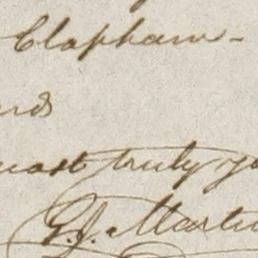 Clapham -
most truly yo
G. J. Martin